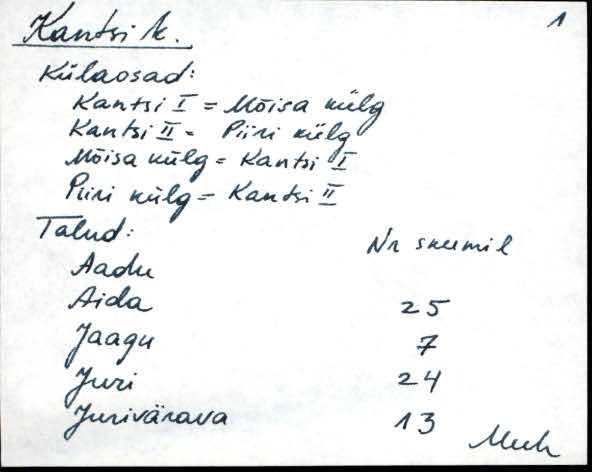 Kantsi k. 1
Külaosad:
Kantsi I = Mõisa külg
Kantsi II = Piiri külg
Mõisa külg = Kantsi I
Piiri külg = Kantsi II
Talud: Nr skeemil
Aadu
Aida 25
Jaagu 7
Juri 24
Jurivärava 13
Muh